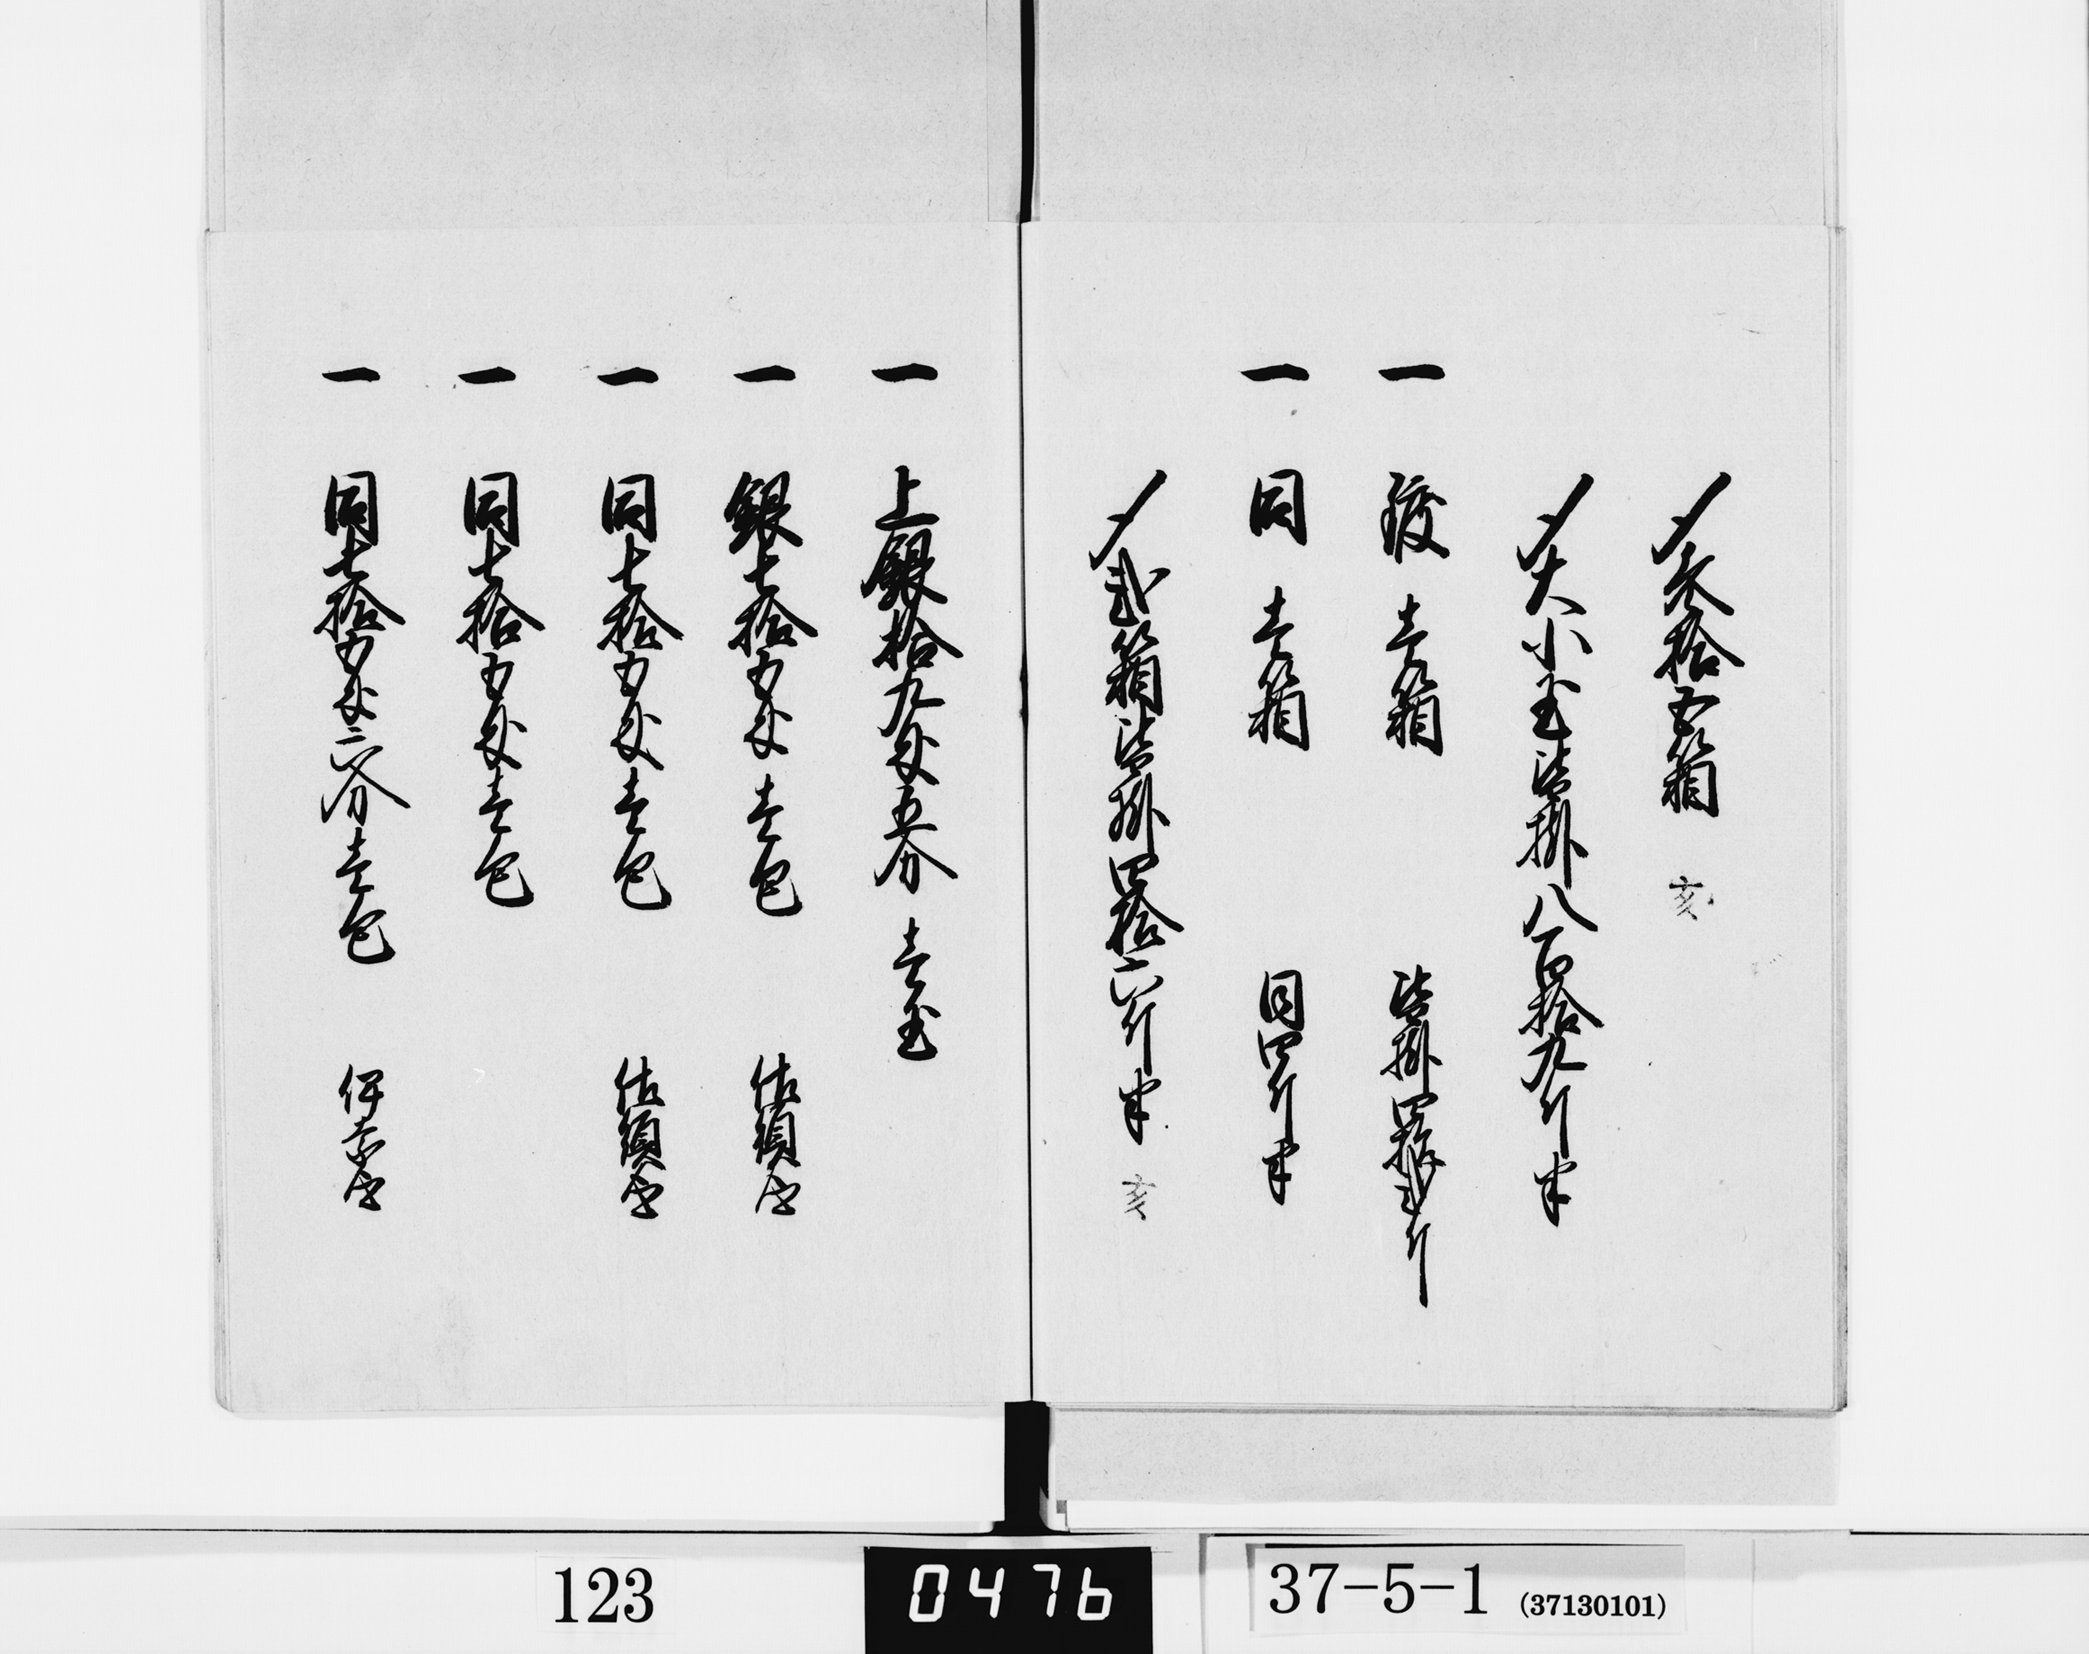 〆参拾五箱 亥
〆大小玉皆掛八百拾九斤半
一 壱箱 皆掛四拾弐斤
一 同 壱箱 同四斤半
〆弐箱皆掛四拾六斤半 亥
一 上銀拾九匁五分 壱玉
一 銀七拾五匁壱包 佐須
一 同七拾五匁壱包 佐須
一 同七拾五匁壱包
一 同七拾五匁六分壱包 伊奈
123
0476
37-5-1 (37130101)